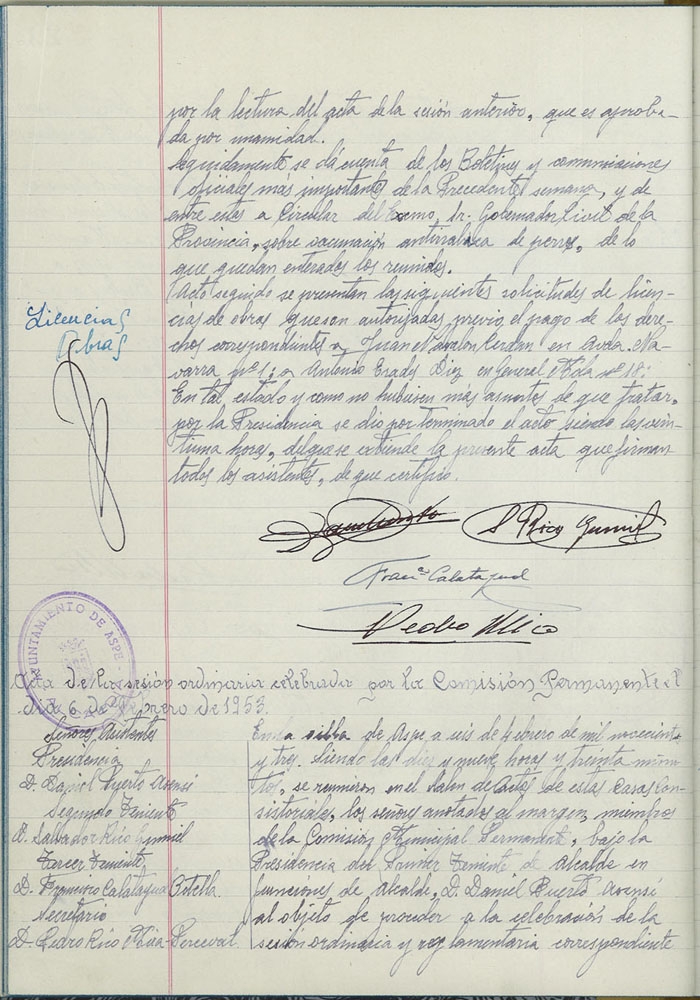 por la lectura del acta de la sesión anterior, que es aproba-
da por unanimidad.
Seguidamente se dá cuenta de los Boletines y comunicaciones
oficiales más importantes de la Precedente semana, y de
entre estas a Circular del Excmo, Sr. Gobernador Civil de la
Provincia, sobre vacunación antirrabica de perros, de lo
que quedan enterados los reunidos.
Acto seguido se presentan las siguientes solicitudes de licen-
cias de obras que son autorizadas previo el pago de los dere-
Licencias
Obras
chos correspondientes a, Juan Navalon Cerdan en Avda. Na-
varra nº 1; a Antonio Erades Diez en General Mola nº 18;
En tal estado y como no hubiesen más asuntos de que tratar,
por la Presidencia se dio por terminado el acto siendo las
horas, del que se extiende la presente acta que firman
todos los asistentes, de que certifico.
S. Rico Gumiel
Franco. Calatayud
Pedro Mico
AYUNTAMIENTO DE ASPE
Acta de la sesión ordinaria celebrada por la Comisión Permanente el
dia 6 de Febrero de 1953.
Señores Asistentes
Presidencia
D. Daniel Puerto Asensi
Segundo Teniente
D. Salvador Rico Gumiel
Tercer Teniente
D. Francisco Calatayud Botella
Secretario
D. Pedro Rico Perceval
En la villa de Aspe, a seis de Febrero de mil
y tres. Siendo las diez y nueve horas y treinta minu-
tos, se reunieron en el Salon de actos de estas Casas Con-
sistoriales, los señores anotados al margen, miembros
de la Comisión Municipal Permanente, bajo la
Presidencia del Primer Teniente de Alcalde en
funciones de Alcalde, D. Daniel Puerto Asensi
al objeto de proceder a la celebración de la
sesión ordinaria y reglamentaria correspondiente